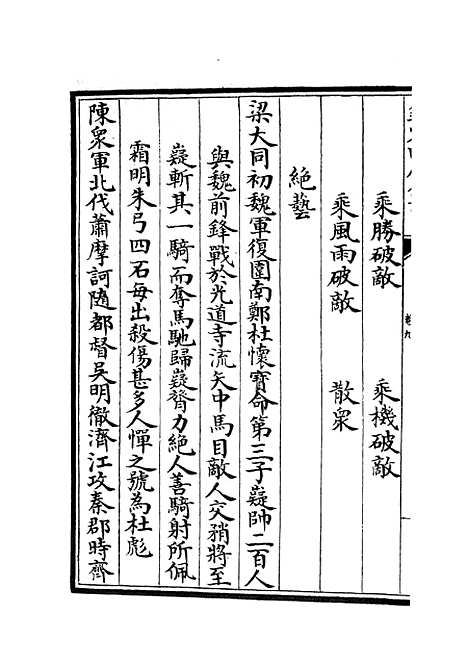 乘勝破敵 乘機破敵
乘風雨破敵 散衆
絕藝
梁大同初魏軍復圍南鄭杜懷寶命第三子嶷帥二百人
與魏前鋒戰於光道寺流矢中馬目敵人交矟將至
嶷斬其一騎而奪馬馳歸嶷膂力絕人善騎射所佩
霜明朱弓四石每出殺傷甚多人憚之號為杜彪
陳衆軍北伐蕭摩訶隨都督吳明徹濟江攻秦郡時齊